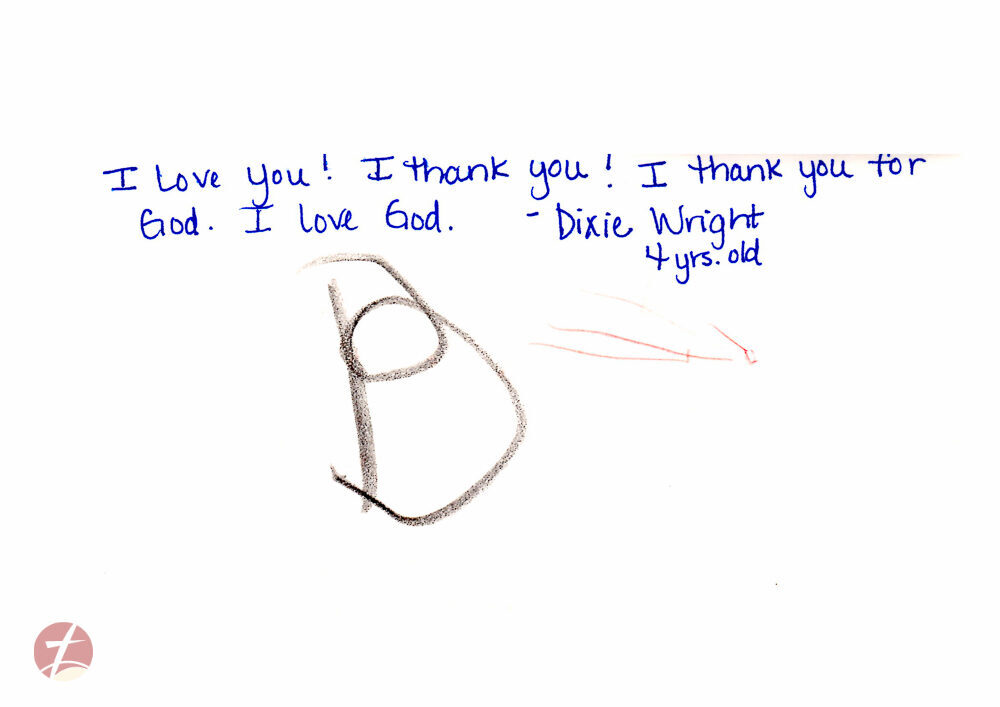 I Love you! I thank you! I thank you for
God. I love God. - Dixie Wright
4 yrs. old